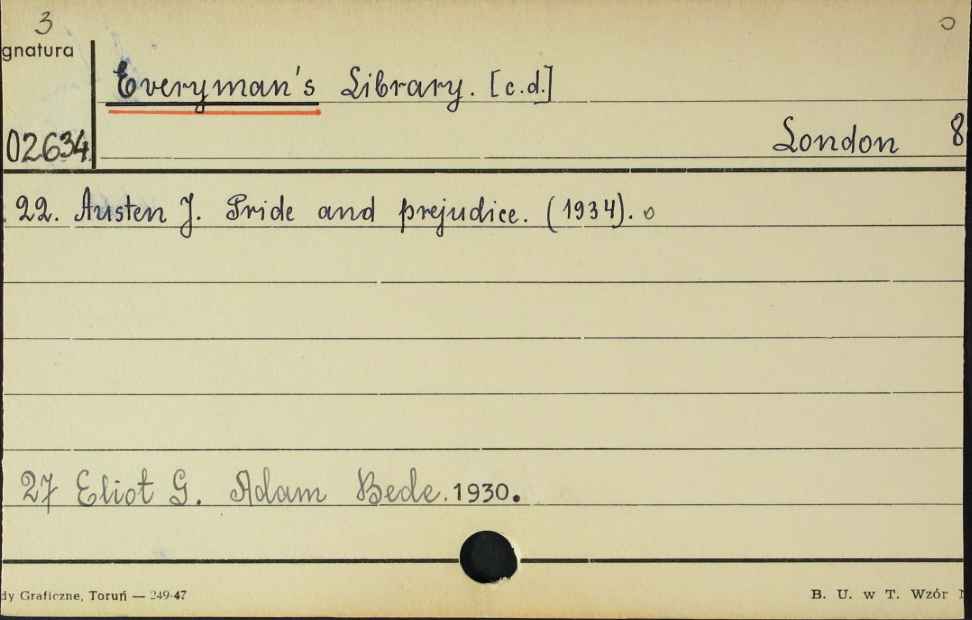 3
gnatura
Everyman's Library. [c.d.]
02634
London 8
22. Austen J. Pride and prejudice. (1934). o
27 Eliot G. Adam Bede. 1930.
dy Graficzne, Toruń — 249-47
B. U. w T. Wzór